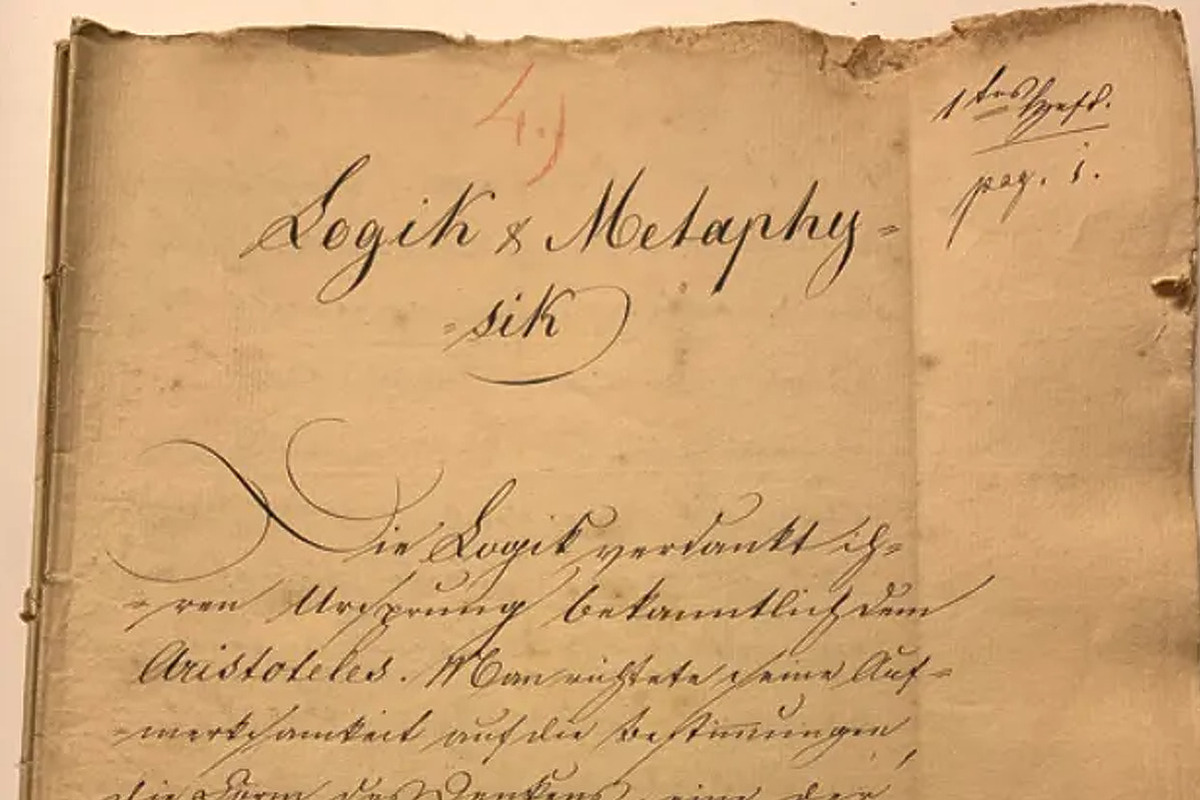 4.)
1tes Heft.
pag. 1.
Logik & Metaphy=
=sik
Die Logik verdankt ih=
=ren Ursprung bekanntlich dem
Aristoteles. Man richtete seine Auf=
=merksamkeit auf die Bestimmungen,
die Form des Denkens, eine der